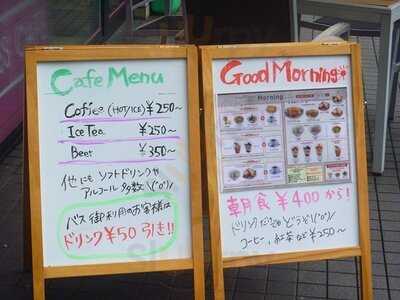 Cafe Menu
Coffee (HOT/ICE) ¥250~
Ice Tea ¥250~
Beer ¥350~
他にも ソフトドリンクや
アルコール 多数 \(^o^)/
バス 御利用のお客様は
ドリンク ¥50 引き!!
Good Morning
Morning
朝食 ¥400 から!
ドリンクだけでもどうぞ\(^o^)/
コーヒー、紅茶など ¥250~